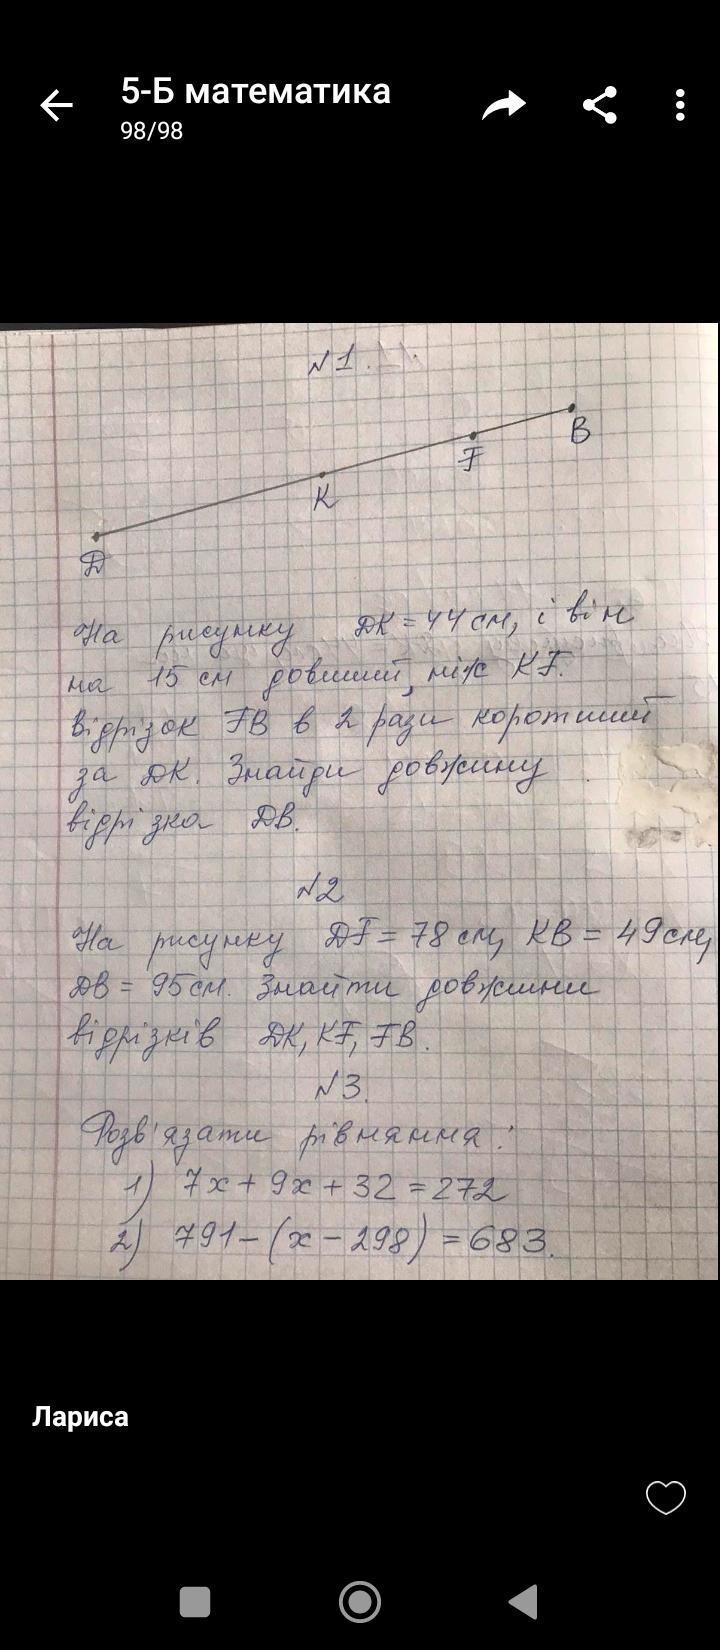 5-Б математика
98/98
№1.
B
F
K
D
На рисунку DK = 44 см, і він
на 15 см довший, ніж KF.
Відрізок FB в 2 рази коротший
за DK. Знайди довжину
відрізка DB.
№2
На рисунку DF = 78 см, KB = 49 см,
DB = 95 см. Знайти довжини
відрізків DK, KF, FB.
№3.
Розв'язати рівняння:
1) 7x + 9x + 32 = 272
2) 791 - (x - 298) = 683.
Лариса